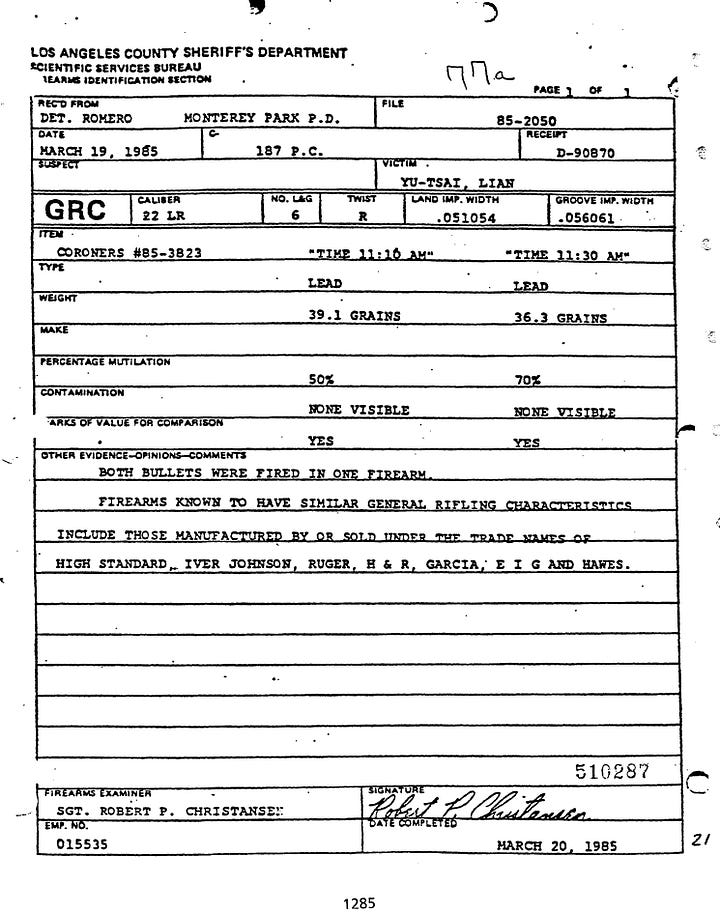 LOS ANGELES COUNTY SHERIFF'S DEPARTMENT
SCIENTIFIC SERVICES BUREAU
IEARMS IDENTIFICATION SECTION
77a
PAGE 1 OF 1
REC'D FROM FILE
DET. ROMERO MONTEREY PARK P.D. 85-2050
DATE C- RECEIPT
MARCH 19, 1985 187 P.C. D-90870
SUSPECT VICTIM
YU-TSAI, LIAN
GRC CALIBER NO. L&G TWIST LAND IMP. WIDTH GROOVE IMP. WIDTH
22 LR 6 R .051054 .056061
ITEM
CORONERS #85-3823 "TIME 11:10 AM" "TIME 11:30 AM"
TYPE
LEAD LEAD
WEIGHT
39.1 GRAINS 36.3 GRAINS
MAKE
PERCENTAGE MUTILATION
50% 70%
CONTAMINATION
NONE VISIBLE NONE VISIBLE
ARKS OF VALUE FOR COMPARISON
YES YES
OTHER EVIDENCE-OPINIONS-COMMENTS
BOTH BULLETS WERE FIRED IN ONE FIREARM.
FIREARMS KNOWN TO HAVE SIMILAR GENERAL RIFLING CHARACTERISTICS
INCLUDE THOSE MANUFACTURED BY OR SOLD UNDER THE TRADE NAMES OF
HIGH STANDARD, IVER JOHNSON, RUGER, H & R, GARCIA, E I G AND HAWES.
510287
FIREARMS EXAMINER SIGNATURE
SGT. ROBERT P. CHRISTANSEN Robert P. Christansen
EMP. NO. DATE COMPLETED
015535 MARCH 20, 1985
21
1285